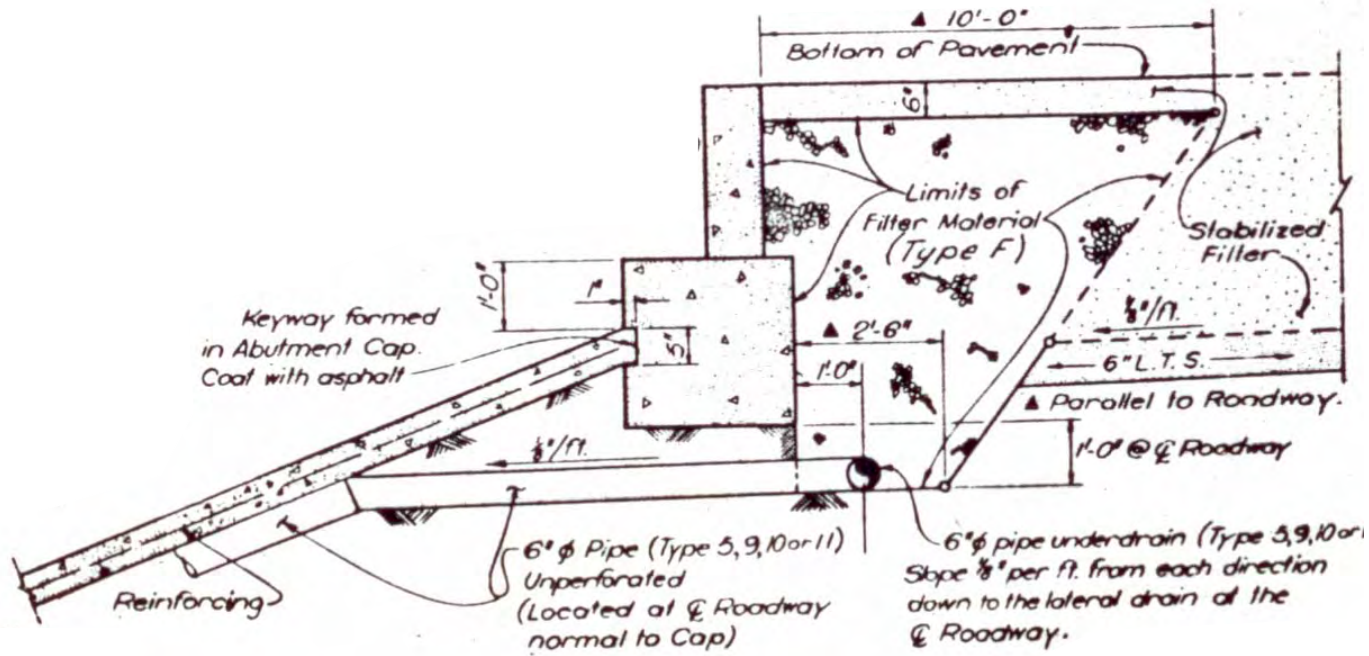 ▲ 10'-0"
Bottom of Pavement
6"
Limits of
Filter Material
(Type F)
Stabilized
Filter
1'-0"
1"
5"
Keyway formed
in Abutment Cap.
Coat with asphalt
▲ 2'-6"
1'-0"
⅛"/ft.
6" L.T.S.
▲ Parallel to Roadway.
1'-0" @ ℄ Roadway
⅛"/ft.
Reinforcing
6" ϕ Pipe (Type 5,9,10 or 11)
Unperforated
(Located at ℄ Roadway
normal to Cap)
6" ϕ pipe underdrain (Type 5,9,10 or
Slope ⅛" per ft. from each direction
down to the lateral drain at the
℄ Roadway.